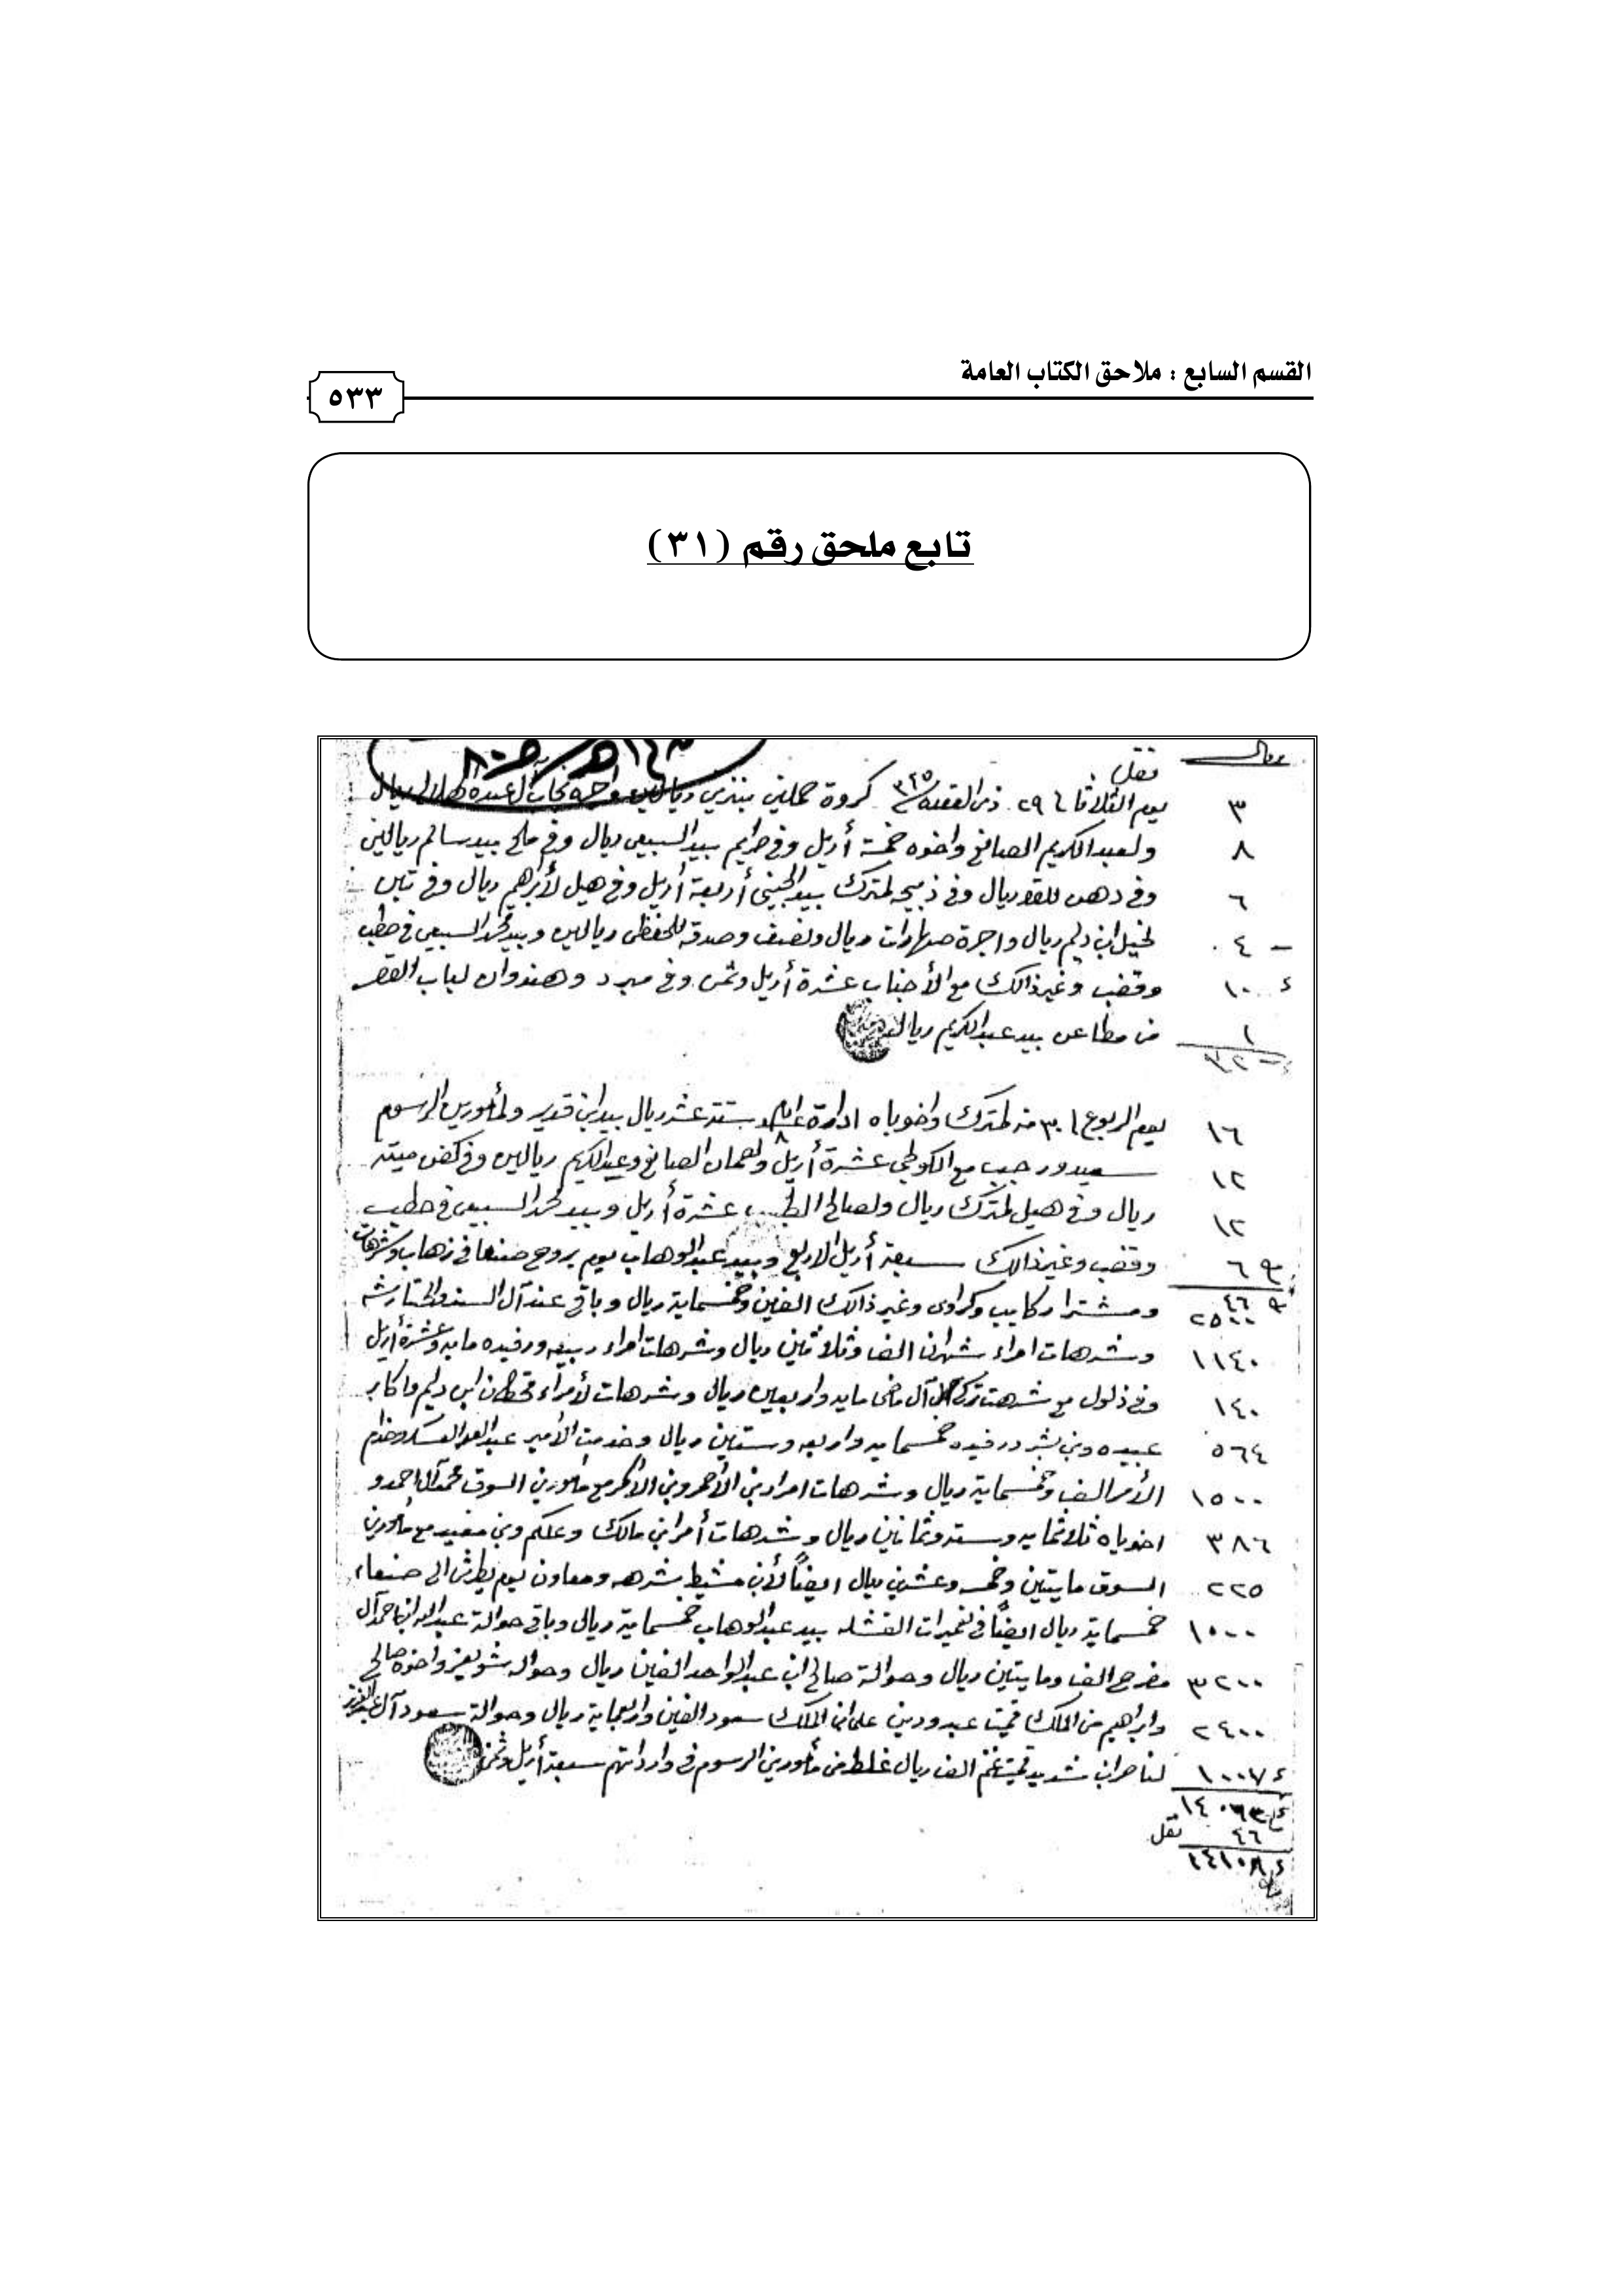 القسم السابع : ملاحق الكتاب العامة
٥٣٣
تابع ملحق رقم (٣١)
ريال
نقل
٣ يوم الثلاثا ٢٩ ذي القعده كروة حملين بنزين ريالين
٨ ولعبدالكريم الصانع واخوه خمسة أريل وفي صرايم بيد السبيعي ريال وفي ملح بيد سالم ريالين
٦ وفي دهن للقو ريال وفي ذبيحه لمترك بيد الجيني أربعة أريل وفي هيل لأبرهيم ريال وفي تبن
٤ لخيل ابن دليم ريال واجرة ريال ونصف وصدقه للحفظي ريالين وبيد محمد السبيعي في حطب
١٠ وقضب وغير ذالك مع الأجناب عشرة أريل وثمن وفي مبرد وهندوان لباب القصر
١ من مطاعن بيد عبدالكريم ريال
٣٢
١٦ يوم الربوع ٣٠ منه لمترك واخوياه ستة عشر ريال بيد ابن قدير ولمأمورين الرسوم
١٢ سعيد ورجب مع الكوطي عشرة أريل ولعمال الصانع وعبدالكريم ريالين وفي كفن ميته
١٢ ريال وفي هيل لمترك ريال ولصالح الطبيب عشرة أريل وبيد محمد السبيعي في حطب
٦ وقضب وغير ذالك سبعة أريل الاربع وبيد عبدالوهاب يوم يروح صنعا في زهاب وشرهات
٤٦
٢٥٠٠ ومشترا ركايب وكراوي وغير ذالك الفين وخمسماية ريال وباقي عند آل السندوالختارشه
١١٤٠ وشرهات امراء شهران الف وثلاثين ريال وشرهات امراء ربيعه ورفيده مايه وعشرة أريل
١٤٠ وفي ذلول مع شرهت تركي آل ماضي مايه واربعين ريال وشرهات لأمراء قحطان ابن دليم واكابر
٥٦٤ عبيده وبني بشر ورفيده خمسمايه واربعه وستين ريال وخدمت الأمير عبدالله العسكر وخدام
١٥٠٠ الأمر الف وخمسماية ريال وشرهات امراء بني الأحمر وبني الأسمر مع مأمورين السوق محمد آل احمد و
٣٨٦ اخوياه ثلاثمايه وسته وثمانين ريال وشرهات أمراء بني مالك وعلكم وبني مغيد مع مأمورين
٢٢٥ السوق مايتين وخمسه وعشرين ريال ايضاً لأبن مشيط شرهه ومعاون يوم يطرش الى صنعاء
١٠٠٠ خمسماية ريال ايضاً في تعميرات القشله بيد عبدالوهاب خمسماية ريال وباقي حوالة عبدالله ابا حمد آل
٣٢٠٠ مفرح الف ومايتين ريال وحوالة صالح ابن عبدالواحد الفين ريال وحوالة شويعز واخوه صالح
٢٤٠٠ وابراهيم من الملك قيمت عبد ودين على ابن الملك سعود الفين واربعماية ريال وحوالة سعود آل عبدالعزيز
١٠٠٧ لناصر ابن شديد قيمة غنم الف ريال غلط من مأمورين الرسوم في وارداتهم سبعة أريل وثمن
١٤٠٦٣
٤٦ نقل
١٤١٠٨